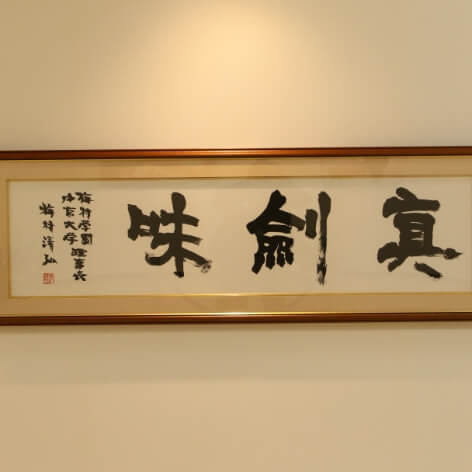 真劍味
梅村学園
中京大学理事長
梅村清弘